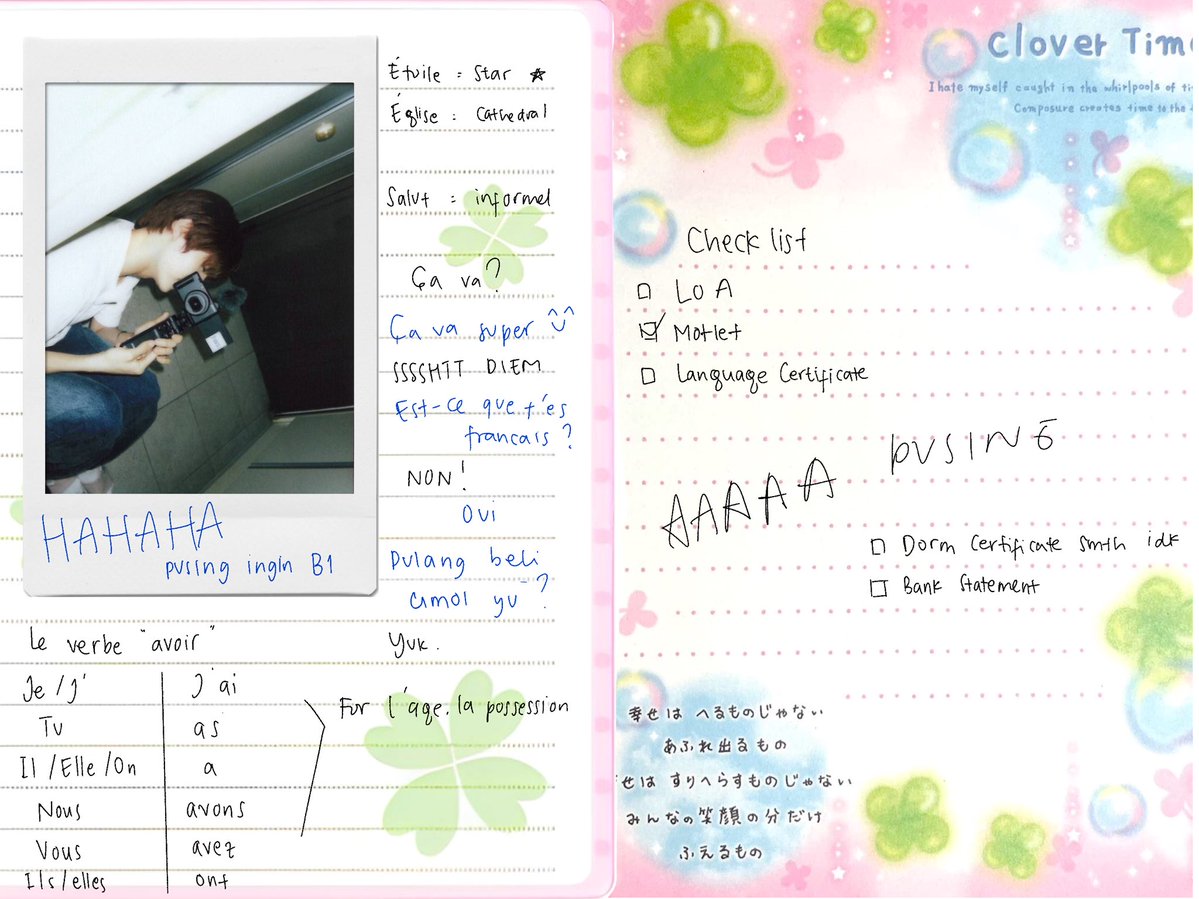 Étuile : Star
Église : Cathedral
Salut : informel
Ça va?
Ça va super
SSSSHTT DIEM
Est-ce que t'es
francais ?
NON!
Oui
Pulang beli
cimol yu ?
Yuk.
HAHAHA
pusing ingin B1
Le verbe "avoir"
Je / j' j'ai
Tu as
Il / Elle / On a
Nous avons
Vous avez
Ils/elles ont
For l'age. la possession
Clover Tim
I hate myself caught in the whirlpools of ti
Composure creates time to the
Check list
LOA
Motlet
Language Certificate
AAAAA
PUSING
Dorm Certificate smth idk
Bank Statement
幸せは へるものじゃない
あふれ出るもの
せは すりへらすものじゃない
みんなの笑顔の分だけ
ふえるもの